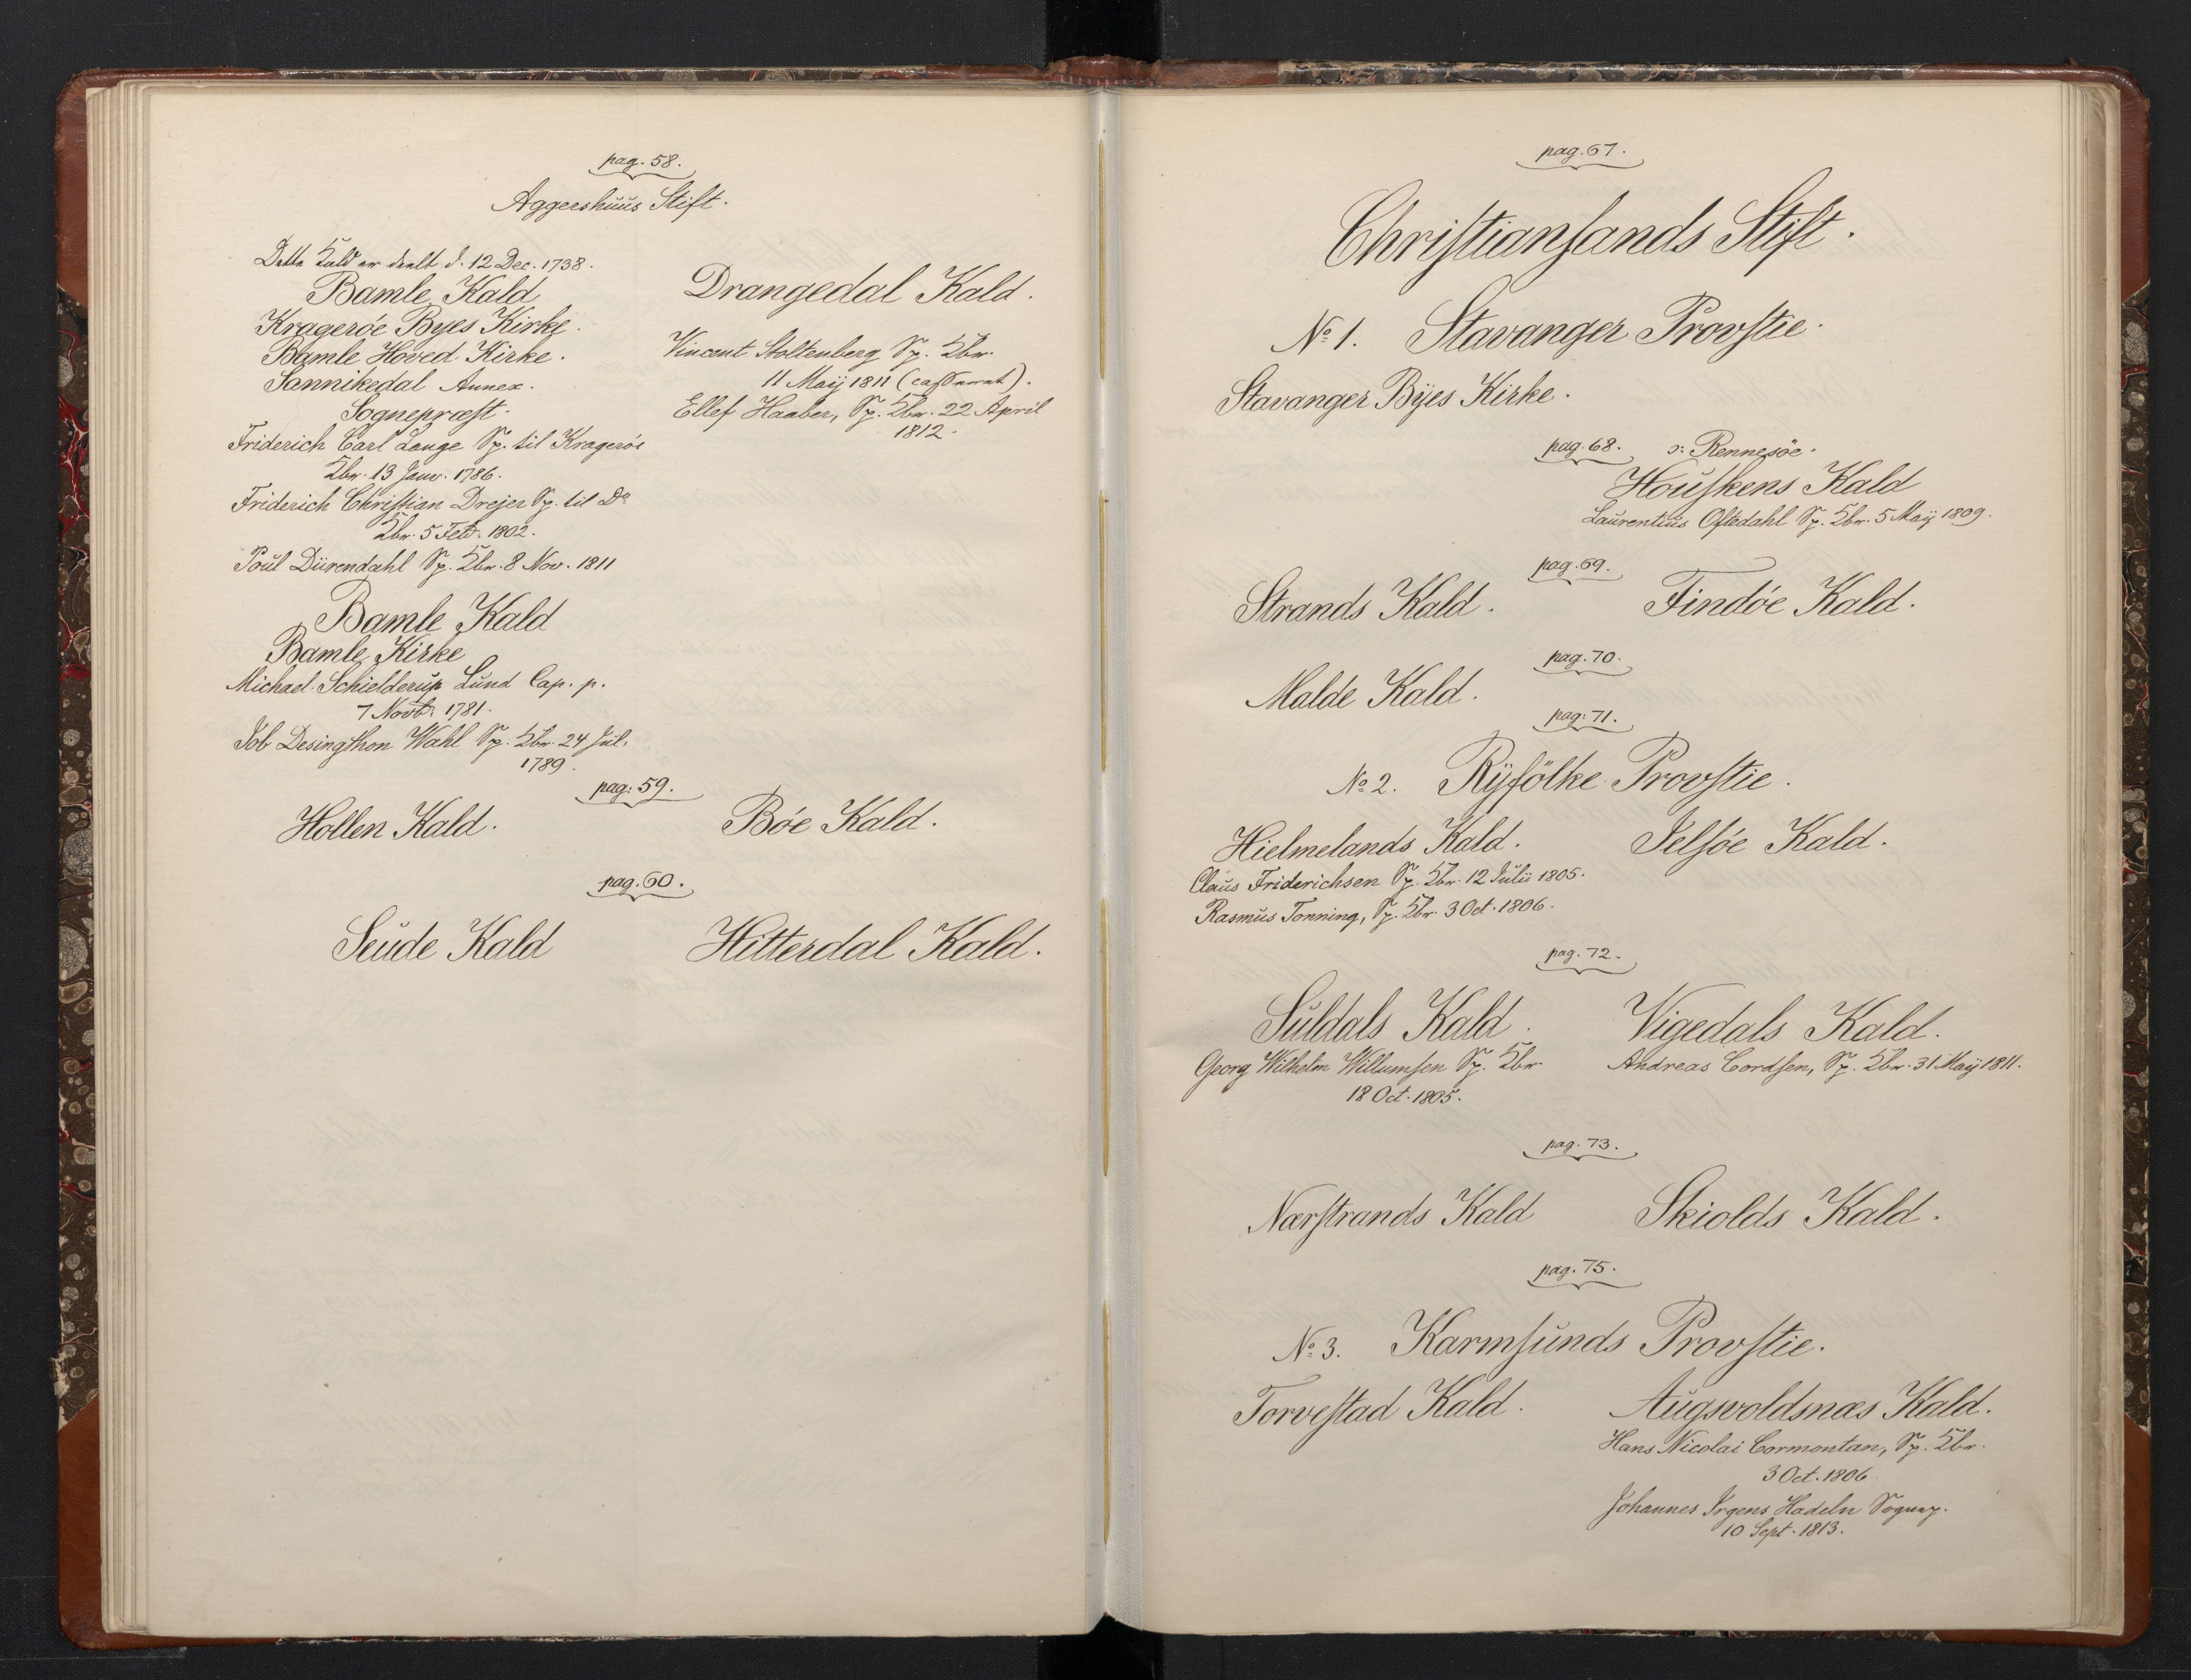 pag. 58.
Aggershuus Stift.
Dette Kald er deelt d. 12 Dec. 1738.
Bamle Kald
Kragerøe Byes Kirke.
Bamle Hoved-Kirke.
Sannikedal Annex.
Sognepræst.
Friderich Carl Lange Sp. til Kragerøe
Kbr. 13 Janr. 1786.
Friderich Christian Drejer Sp. til Do
Kbr. 5 Febr. 1802.
Poul Dürendahl Sp. Kbr. 8 Nov. 1811
Bamle Kald
Bamle Kirke
Michael Schielderup Lund Cap. p.
7 Novbr. 1781.
Job Desingthon Wahl Sp. Kbr. 24 Jul.
1789.
Drangedal Kald.
Vincent Stoltenberg Sp. Kbr.
11 Maij 1811 (casseret).
Ellef Haaber, Sp. Kbr. 22 April
1812.
pag. 59.
Hollen Kald.
Bøe Kald.
pag. 60.
Seude Kald
Hitterdal Kald.
pag. 67.
Christiansands Stift.
No 1. Stavanger Provstie.
Stavanger Byes Kirke.
pag. 68. ɔ: Rennesöe.
Houskens Kald
Laurentius Oftedahl Sp. Kbr. 5 Maij 1809.
pag. 69.
Strands Kald.
Findöe Kald.
pag. 70.
Malde Kald.
pag: 71.
No 2. Ryfölke Provstie.
Hielmelands Kald.
Claus Friderichsen Sp. Kbr. 12 Julii 1805.
Rasmus Tonning, Sp. Kbr. 3 Oct. 1806.
Jelsöe Kald.
pag. 72.
Suldals Kald.
Georg Wilhelm Willumsen Sp. Kbr.
18 Oct. 1805.
Vigedals Kald.
Andreas Cordsen, Sp. Kbr. 31 Maij 1811.
pag. 73.
Nærstrands Kald
Skiolds Kald.
pag. 75.
No 3. Karmsunds Provstie.
Torvestad Kald.
Augvoldsnæs Kald.
Hans Nicolai Cormontan, Sp. Kbr.
3 Oct. 1806
Johannes Irgens Hadeln Sognep.
10 Sept. 1813.